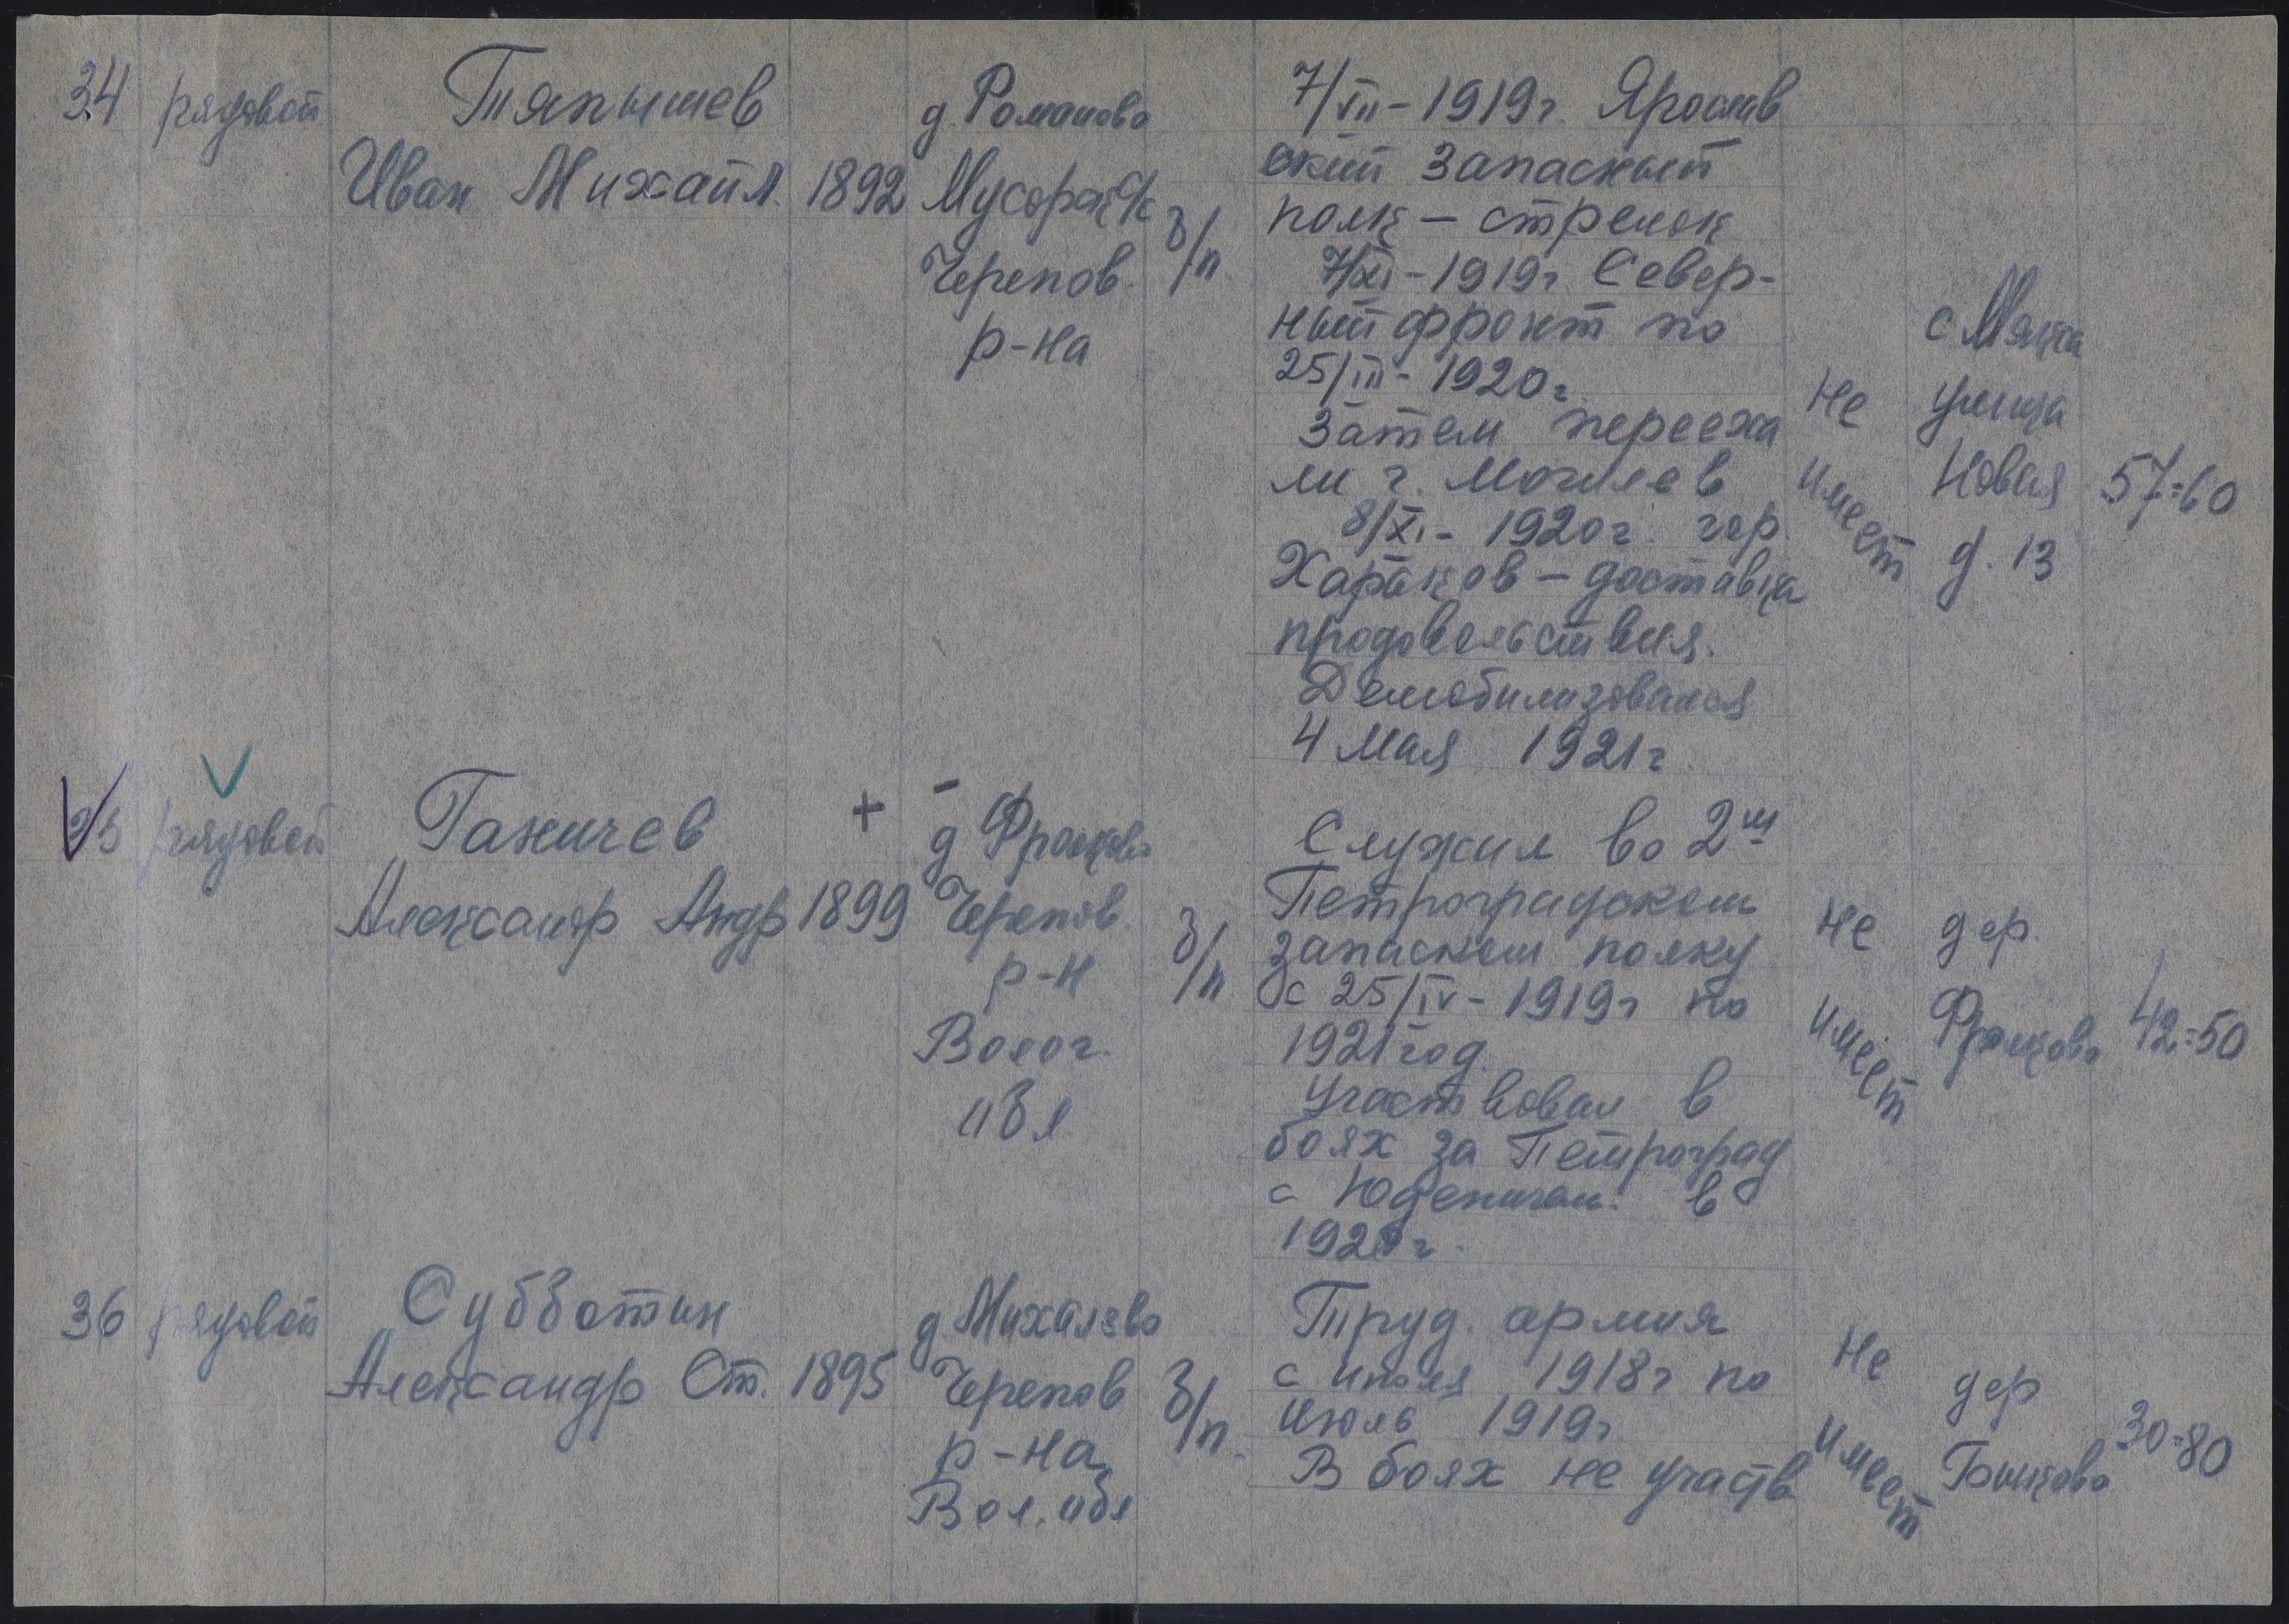 34 рядовой Тяпышев
Иван Михайл. 1892
д. Романово
Мусорск с/с
Черепов.
р-на
б/п.
7/VII-1919г. Ярослав
ский Запасный
полк - стрелок
7/XI-1919г. Север-
ный фронт по
25/III-1920г.
Затем перееха
ли г. Могилев
8/XI-1920г. гор.
Харьков - доставка
продовольствия.
Демобилизовался
4 мая 1921г.
не
имеет
с Мякса
улица
Новая
д. 13
57=60
35 рядовой Ганичев
Александр Андр 1899
+ -
Черепов.
р-н
Волог.
обл
б/п
Служил во 2м
Петроградском
запасном полку
с 25/IV-1919г по
1921 год.
Участвовал в
боях за Петроград
с Юденичем. в
не
имеет
дер.
42=50
36 рядовой Субботин
Александр Ст. 1895
д. Михалево
Черепов
р-на
Вол. обл
б/п.
Труд. армия
с июля 1918г по
июль 1919г.
В боях не участв
не
имеет
дер
30=80